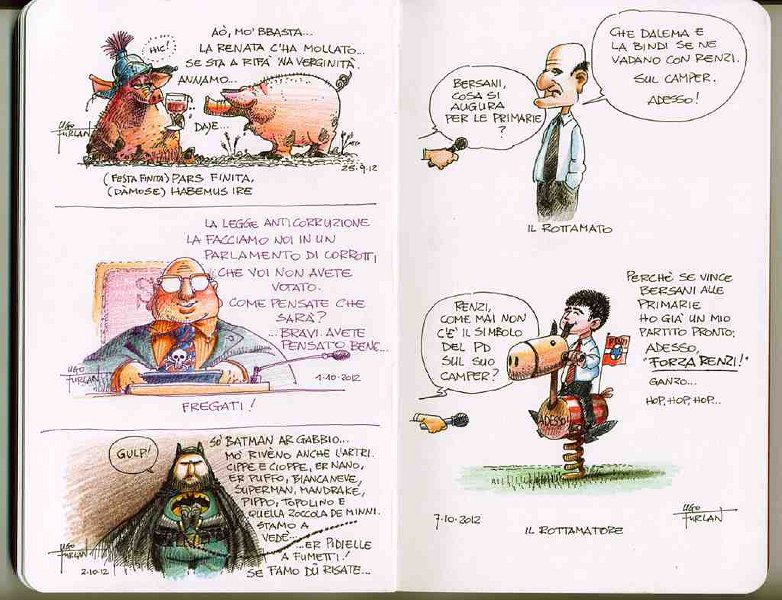 HIC!
AÒ, MO' BBASTA...
LA RENATA C'HA MOLLATO...
SE STA A RIFÀ 'NA VERGINITÀ.
ANNAMO...
DAJE...
UGO
FURLAN
25.9.12
(FESTA FINITA) PARS FINITA,
(DÀMOSE) HABEMUS IRE
LA LEGGE ANTICORRUZIONE
LA FACCIAMO NOI IN UN
PARLAMENTO DI CORROTTI
CHE VOI NON AVETE
VOTATO.
COME PENSATE CHE
SARÀ?
...BRAVI. AVETE
PENSATO BENE...
UGO
FURLAN
1.10.2012
FREGATI!
GULP!
SÒ BATMAN AR GABBIO...
MO RIVÈNO ANCHE L'ARTRI.
CIPPE E CIOPPE, ER NANO,
ER PUFFO, BIANCANEVE,
SUPERMAN, MANDRAKE,
PIPPO, TOPOLINO E
QUELLA ZOCCOLA DE MINNI.
STAMO A
VEDE...
...ER PIDIELLE
A FUMETTI!
SE FAMO DÙ RISATE...
UGO
FURLAN
2.10.12
BERSANI,
COSA SI
AUGURA
PER LE PRIMARIE
?
CHE DALEMA E
LA BINDI SE NE
VADANO CON RENZI.
SUL CAMPER.
ADESSO!
IL ROTTAMATO
RENZI,
COME MAI NON
C'È IL SIMBOLO
DEL PD
SUL SUO
CAMPER?
PERCHÈ SE VINCE
BERSANI ALLE
PRIMARIE
HO GIÀ UN MIO
PARTITO PRONTO:
ADESSO,
"FORZA RENZI!"
GANZO...
HOP, HOP, HOP...
ADESSO
7.10.2012
IL ROTTAMATORE
UGO
FURLAN